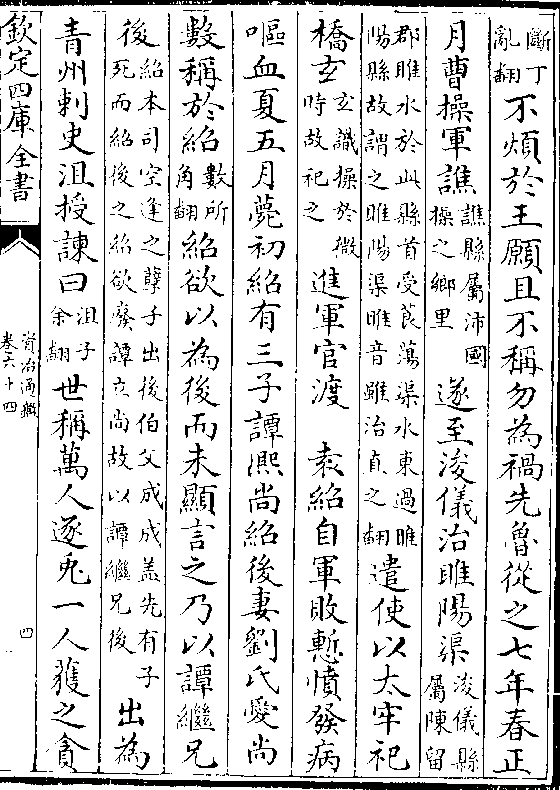 斷丁亂翻不煩於王願且不稱勿為禍先魯從之七年春正
月曹操軍譙譙縣屬沛國操之鄉里遂至浚儀治睢陽渠浚儀縣屬陳留
郡睢水於此縣首受莨蕩渠水東過睢陽縣故謂之睢陽渠睢音雖治直之翻遣使以太牢祀
橋玄玄識操於微時故祀之進軍官渡　袁紹自軍敗慙憤發病
嘔血夏五月薨初紹有三子譚熙尚紹後妻劉氏愛尚
數稱於紹數所角翻紹欲以為後而未顯言之乃以譚繼兄
後紹本司空逢之孽子出後伯父成成盖先有子死而紹後之紹欲廢譚立尚故以譚繼兄後出為
青州刺史沮授諫曰沮子余翻世稱萬人逐兎一人獲之貪
欽定四庫全書
資治通鑑
卷六十四
四